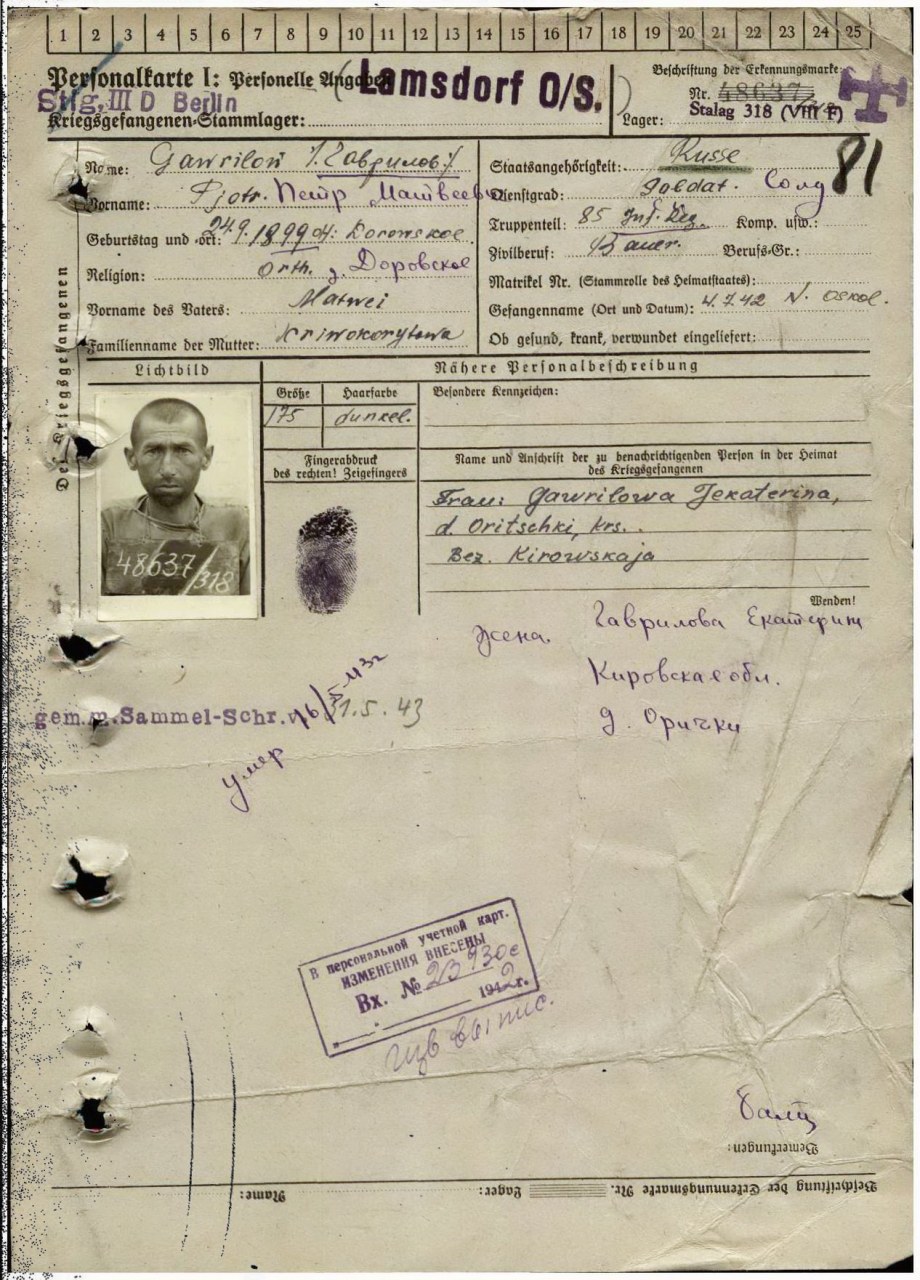 1 2 3 4 5 6 7 8 9 10 11 12 13 14 15 16 17 18 19 20 21 22 23 24 25
Personalkarte I: Personelle Angaben
Lamsdorf O/S.
Beschriftung der Erkennungsmarke
Nr. 48637
Stlg. III D Berlin
Stalag 318 (VIII F)
Kriegsgefangenen-Stammlager:
Lager:
81
Des Kriegsgefangenen
Name: Gawrilow /Гаврилов/
Vorname: Pjotr. Петр Матвеев
Geburtstag und -ort: 24.9.1899 Doronskoe
Religion: Orth. д. Доровское
Vorname des Vaters: Matwei
Familienname der Mutter: Kriwokorytowa
Staatsangehörigkeit: Russe
Dienstgrad: Soldat. Солд
Truppenteil: 85 Inf. Reg. Komp. usw.:
Zivilberuf: Bauer. Berufs-Gr.:
Matrikel Nr. (Stammrolle des Heimatstaates):
Gefangenname (Ort und Datum): 4.7.42 N. Oskol.
Ob gesund, krank, verwundet eingeliefert:
Lichtbild
Nähere Personalbeschreibung
Größe
Haarfarbe
Besondere Kennzeichen:
175
dunkel.
Fingerabdruck
des rechten! Zeigefingers
Name und Anschrift der zu benachrichtigenden Person in der Heimat
des Kriegsgefangenen
Frau: Gawrilowa Jekaterina,
d. Oritschki, krs.
Bez. Kirowskaja
48637/318
Wenden!
жена. Гаврилова Екатерин
Кировская обл.
д. Орички
gem.m.Sammel-Schr.v. 31.5.43
умер
В персональной учетной карт.
ИЗМЕНЕНИЯ ВНЕСЕНЫ
Вх. №
194 г.
Bemerkungen:
Beschriftung der Erkennungsmarke Nr.
Lager:
Name: